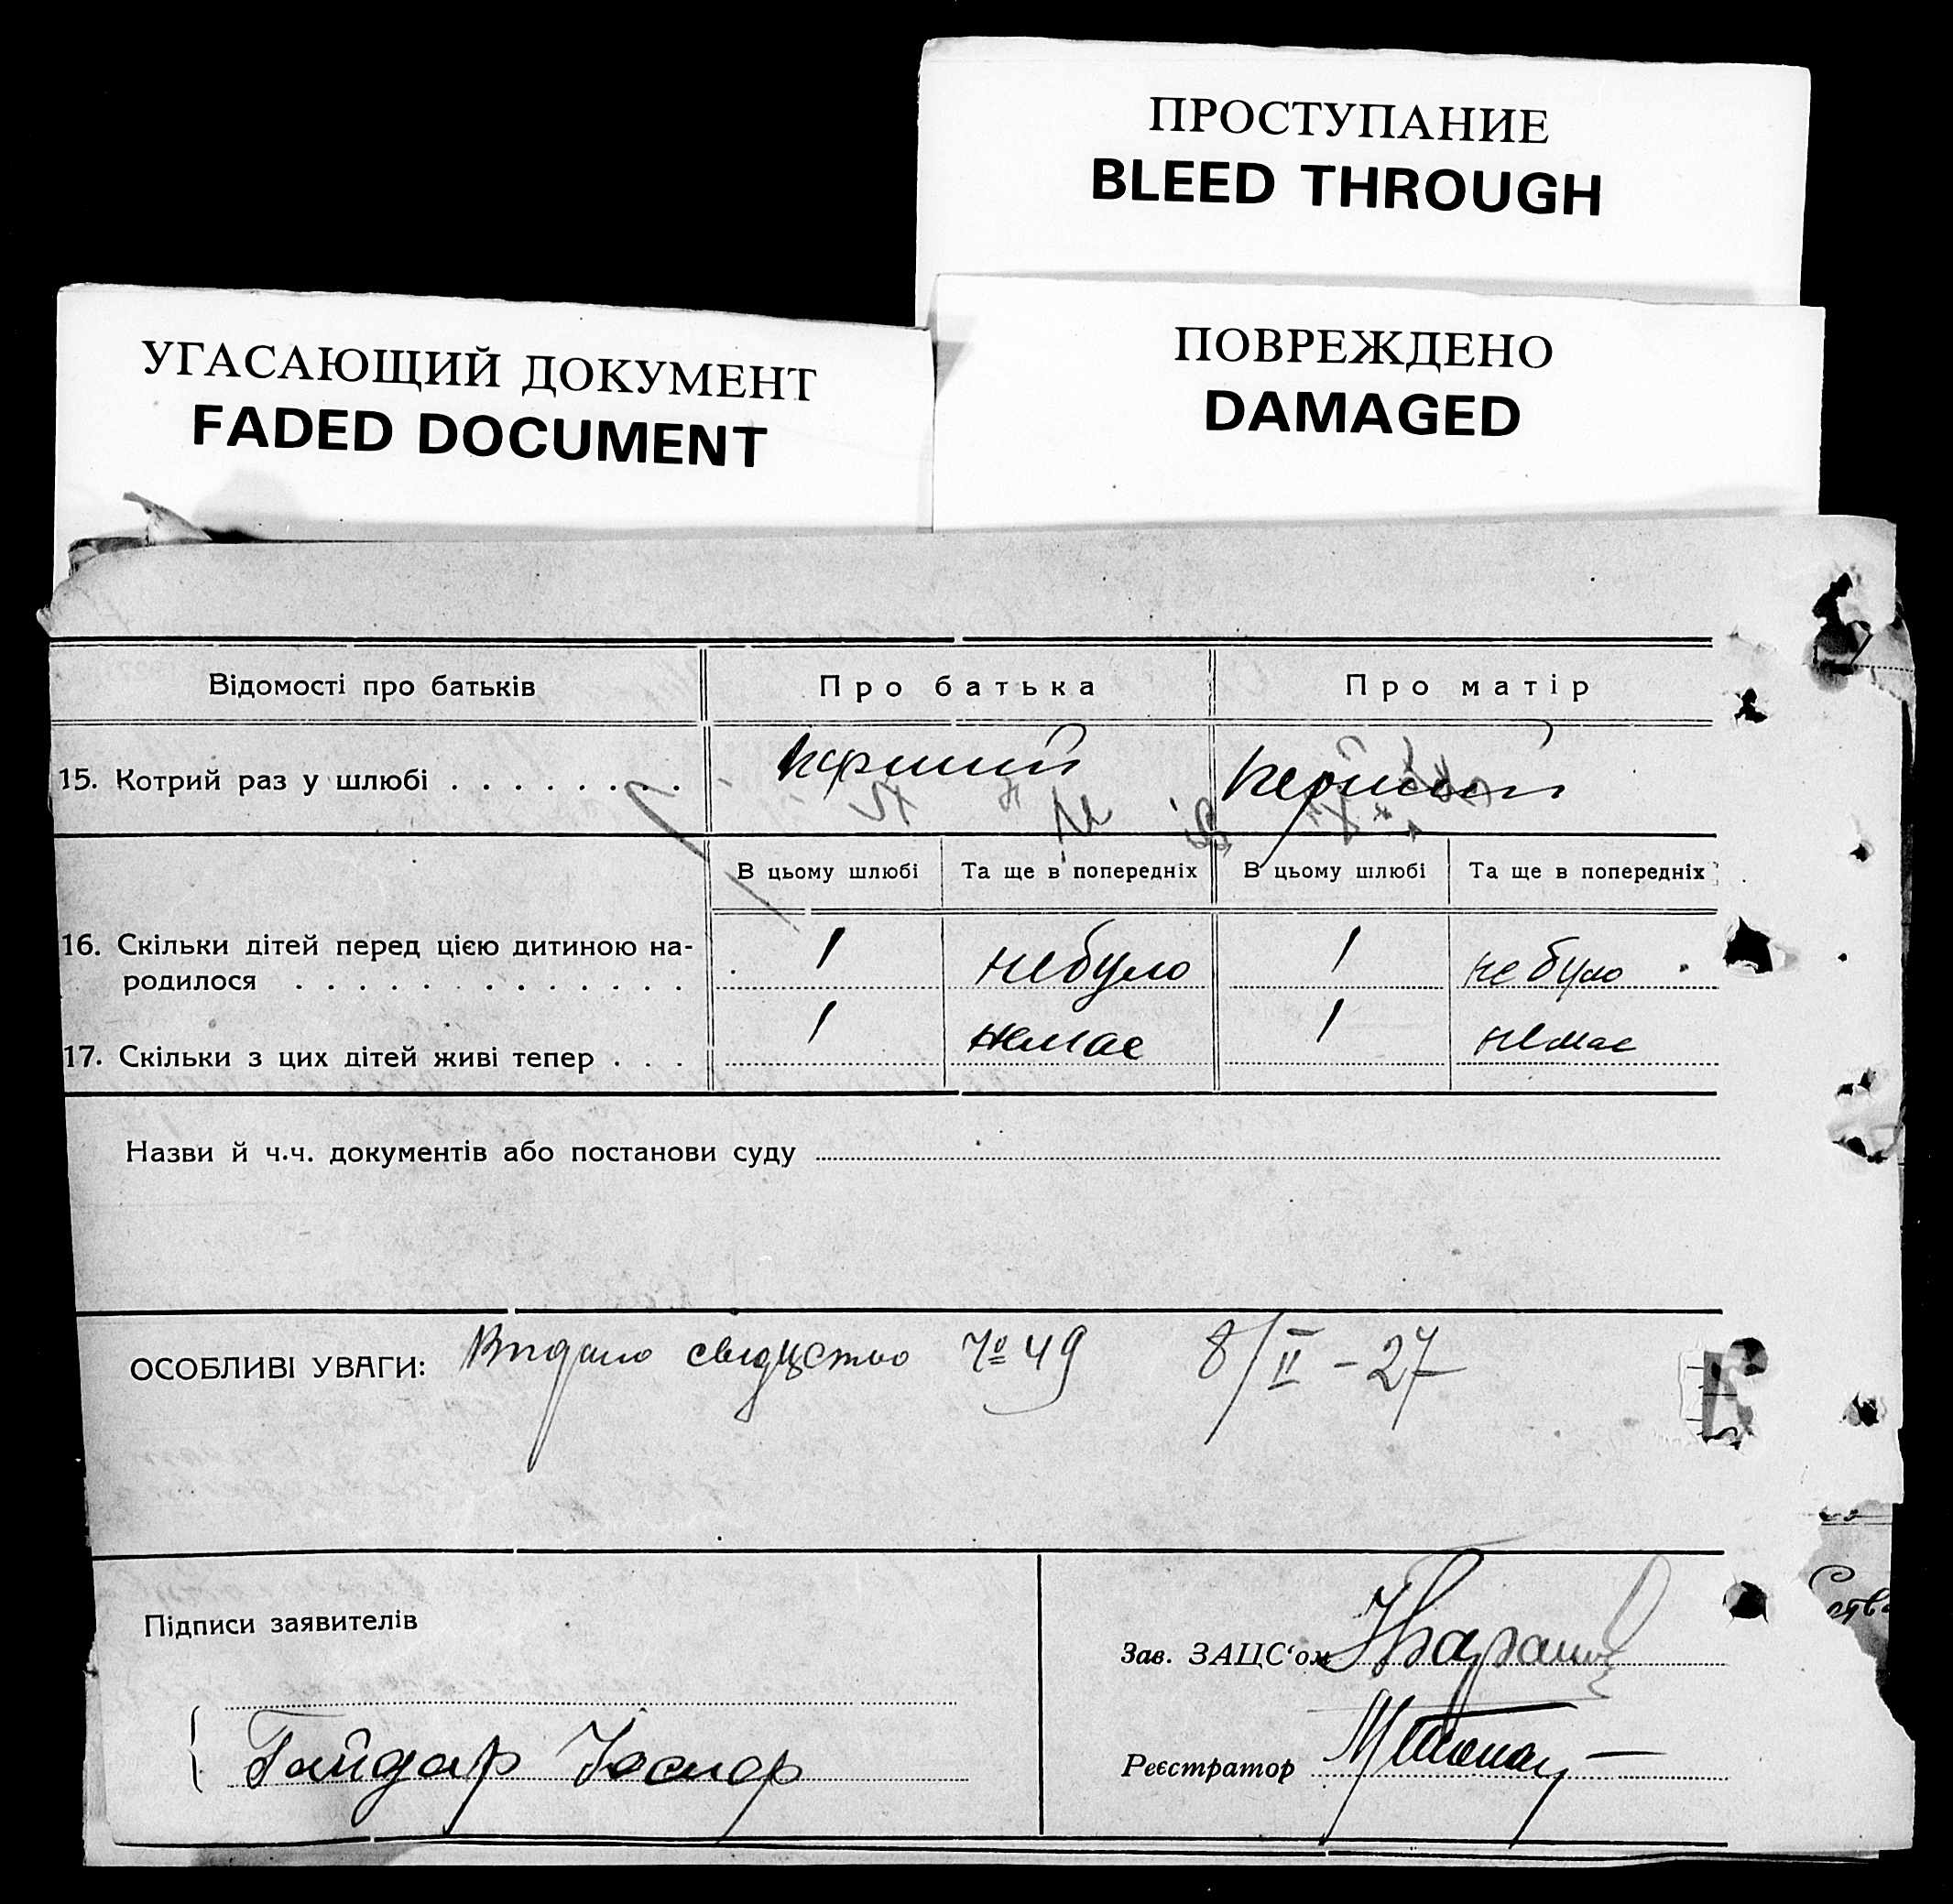 ПРОСТУПАНИЕ
BLEED THROUGH
УГАСАЮЩИЙ ДОКУМЕНТ
FADED DOCUMENT
ПОВРЕЖДЕНО
DAMAGED
Відомості про батьків Про батька Про матір
15. Котрий раз у шлюбі . . . . . . . . перший перший
В цьому шлюбі Та ще в попередніх В цьому шлюбі Та ще в попередніх
16. Скільки дітей перед цією дитиною на-
родилося . . . . . . . . . . . . . 1 небуло 1 небуло
17. Скільки з цих дітей живі тепер . . . 1 немає 1 немає
Назви й ч.ч. документів або постанови суду
ОСОБЛИВІ УВАГИ: Видано свідоцтво № 49 8/II – 27
Підписи заявителів
Зав. ЗАЦС‘ом
Гайдар
Реєстратор